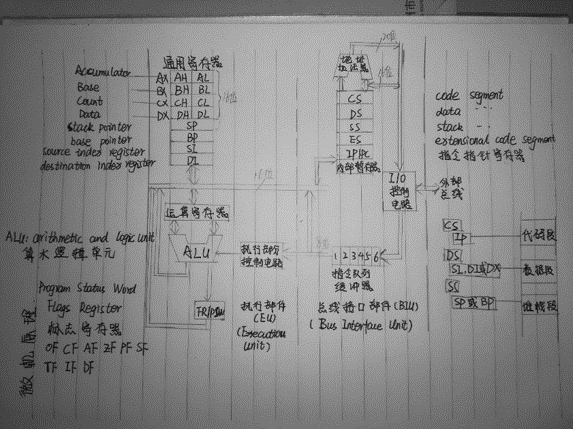 通用寄存器
Accumulator AX AH AL
Base BX BH BL
Count CX CH CL
Data DX DH DL
16位
stack pointer SP
base pointer BP
source index register SI
destination index register DI
16位
运算寄存器
ALU
FR/PSW
ALU: arithmetic and logic unit
算术逻辑单元
Program Status Word
Flags Register
标志寄存器
OF CF AF ZF PF SF
TF IF DF
微机原理
执行部分
控制电路
执行部件
(EU)
(Execution
Unit)
20位
地址
加法器
16位
CS
DS
SS
ES
IP/PC
内部暂存器
I/O
控制
电路
外部
总线
8位
1 2 3 4 5 6
指令队列
缓冲器
总线接口部件(BIU)
(Bus Interface Unit)
code segment
data
stack
extensional code segment
指令指针寄存器
CS
IP
代码段
DS
SI.DI或DX
数据段
SS
SP或BP
堆栈段